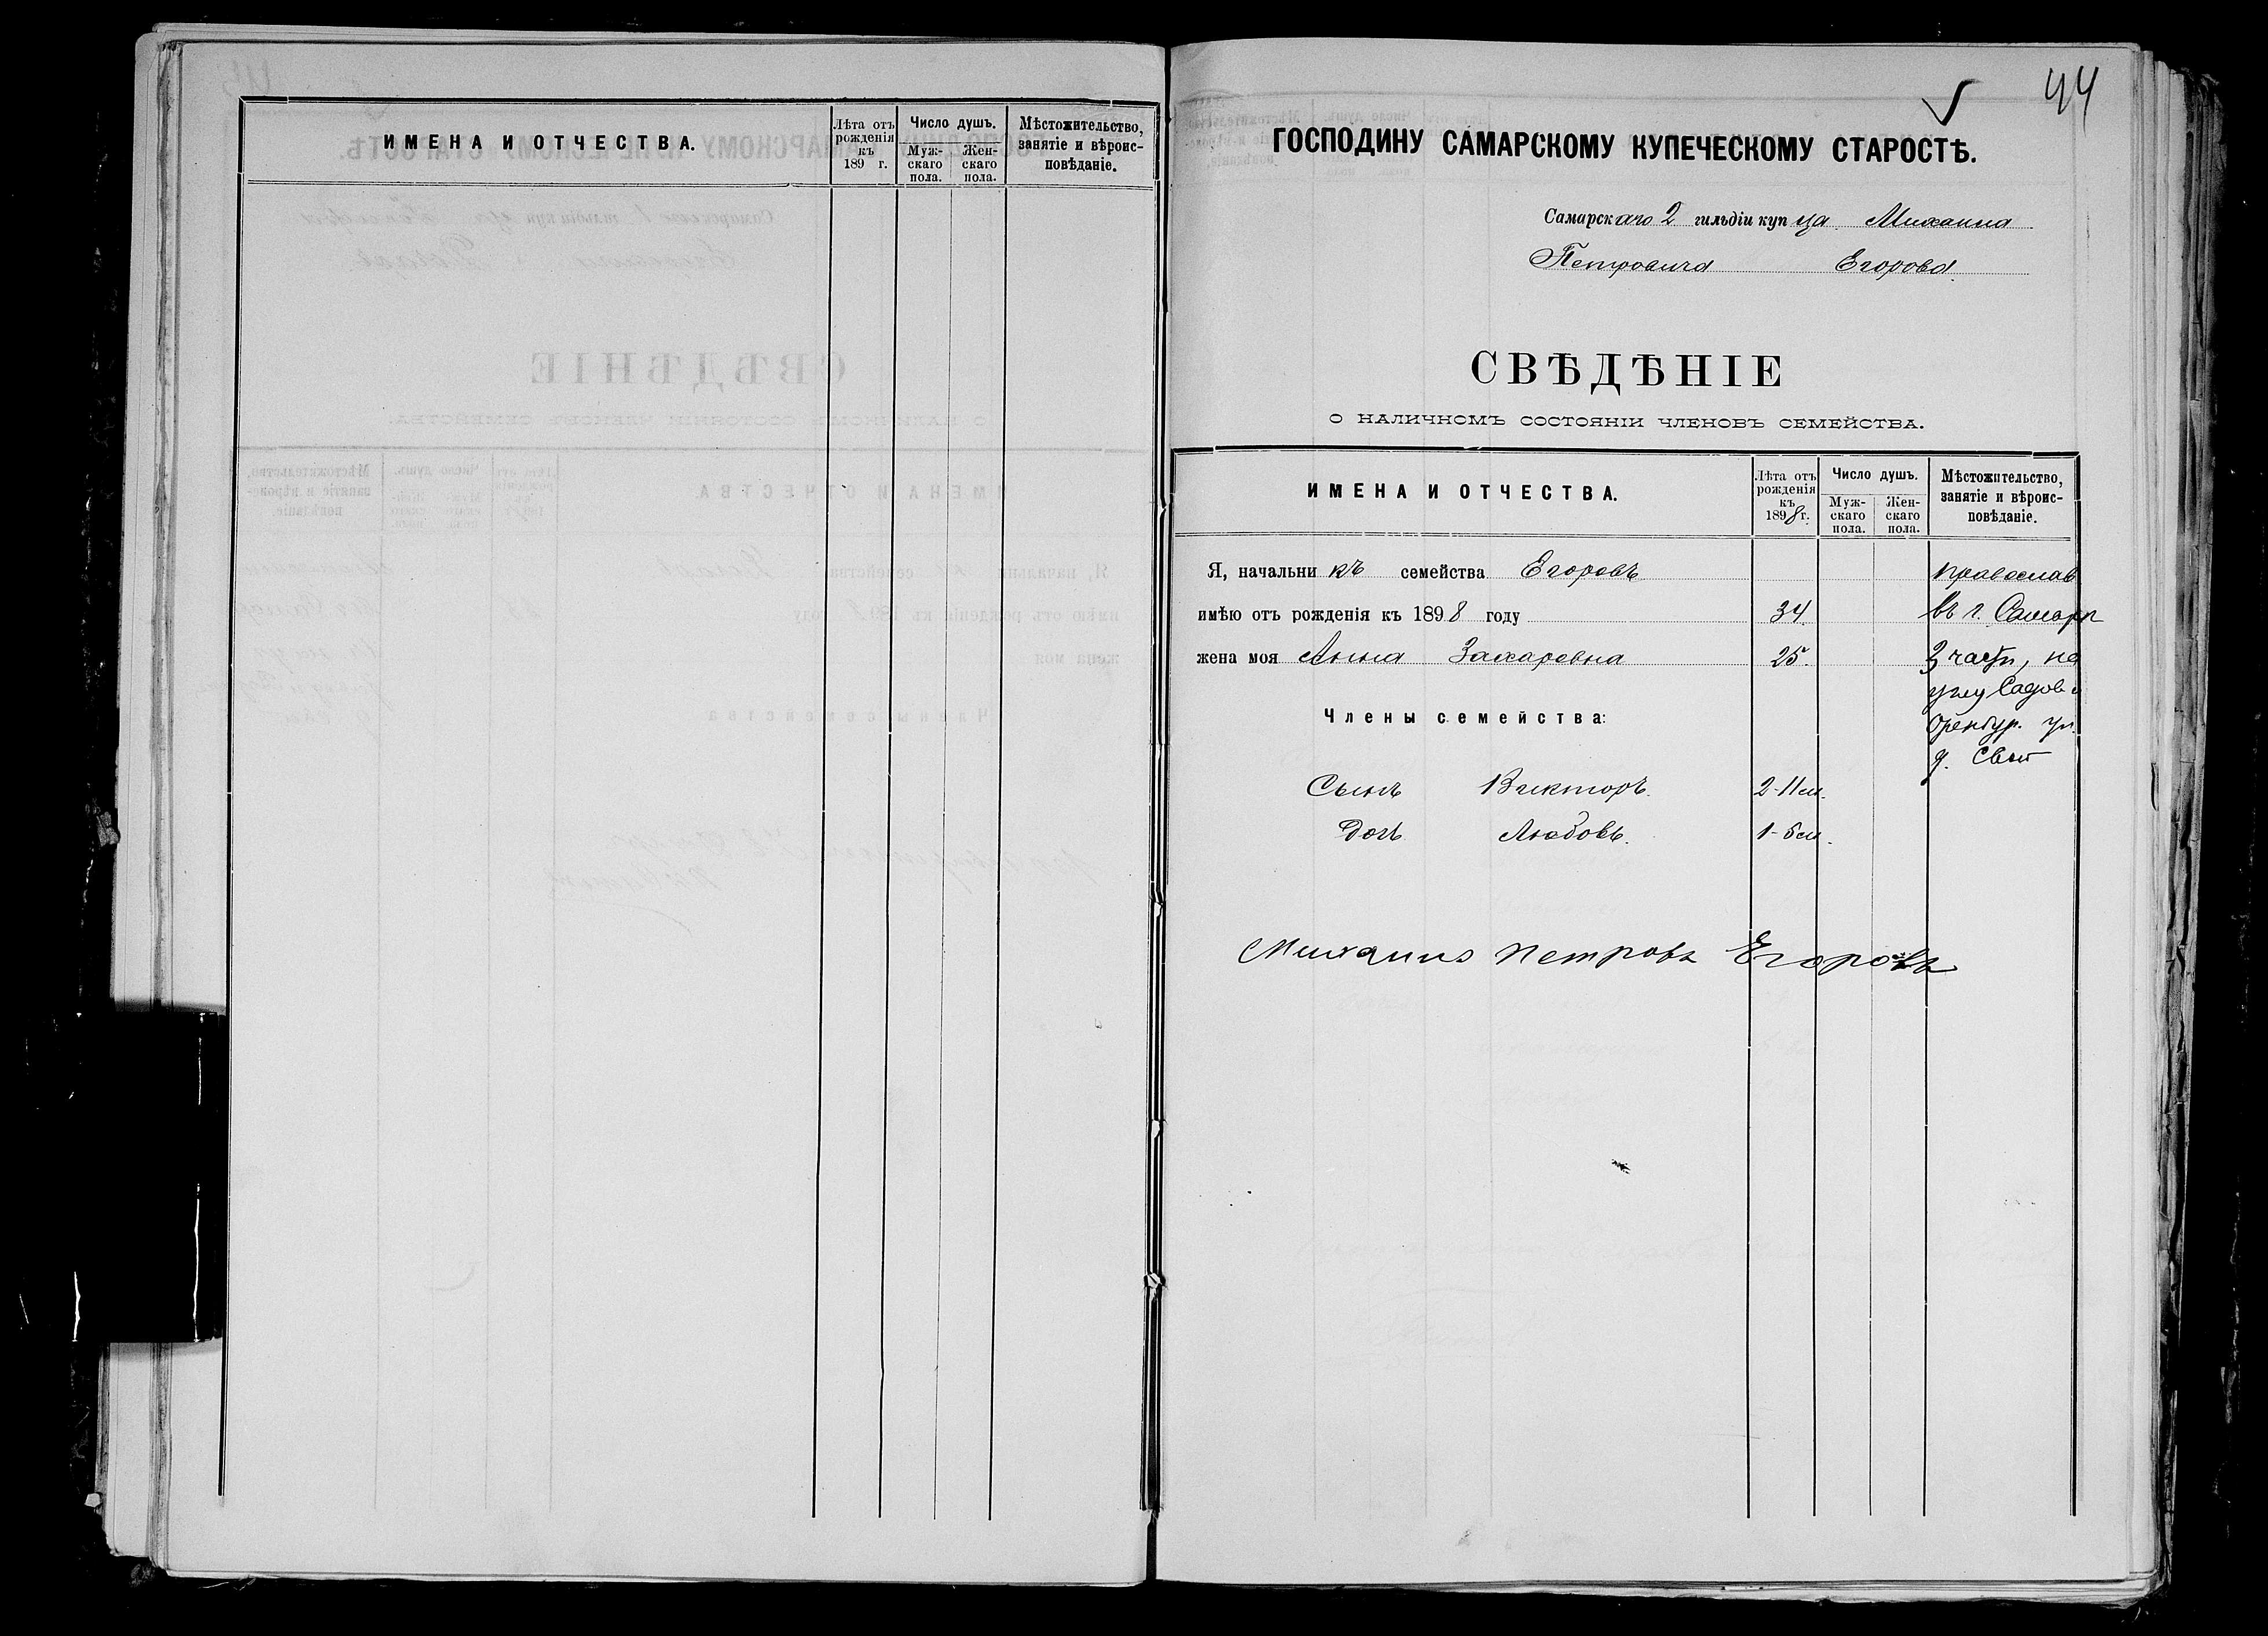 ИМЕНА И ОТЧЕСТВА.
Лѣта отъ рожденія къ 189 г.
Число душъ.
Мужскаго пола.
Женскаго пола.
Мѣстожительство, занятіе и вѣроисповѣданіе.
44
ГОСПОДИНУ САМАРСКОМУ КУПЕЧЕСКОМУ СТАРОСТѢ.
Самарскаго 2 гильдіи купца Михаила
Петровича Егорова
СВѢДѢНІЕ
О НАЛИЧНОМЪ СОСТОЯНІИ ЧЛЕНОВЪ СЕМЕЙСТВА.
ИМЕНА И ОТЧЕСТВА.
Лѣта отъ рожденія къ 1898 г.
Число душъ.
Мужскаго пола.
Женскаго пола.
Мѣстожительство, занятіе и вѣроисповѣданіе.
Я, начальникъ семейства Егоровъ православ
имѣю отъ рожденія къ 1898 году 34. въ г. Самарѣ
жена моя Анна Захаровна 25. 3 части, на
углу Садов и
Члены семейства: Оренбур. ул.
д.
Сынъ Викторъ. 2-11 м.
Дочь Любовь. 1-5 м.
Михаилъ Петровъ Егоровъ